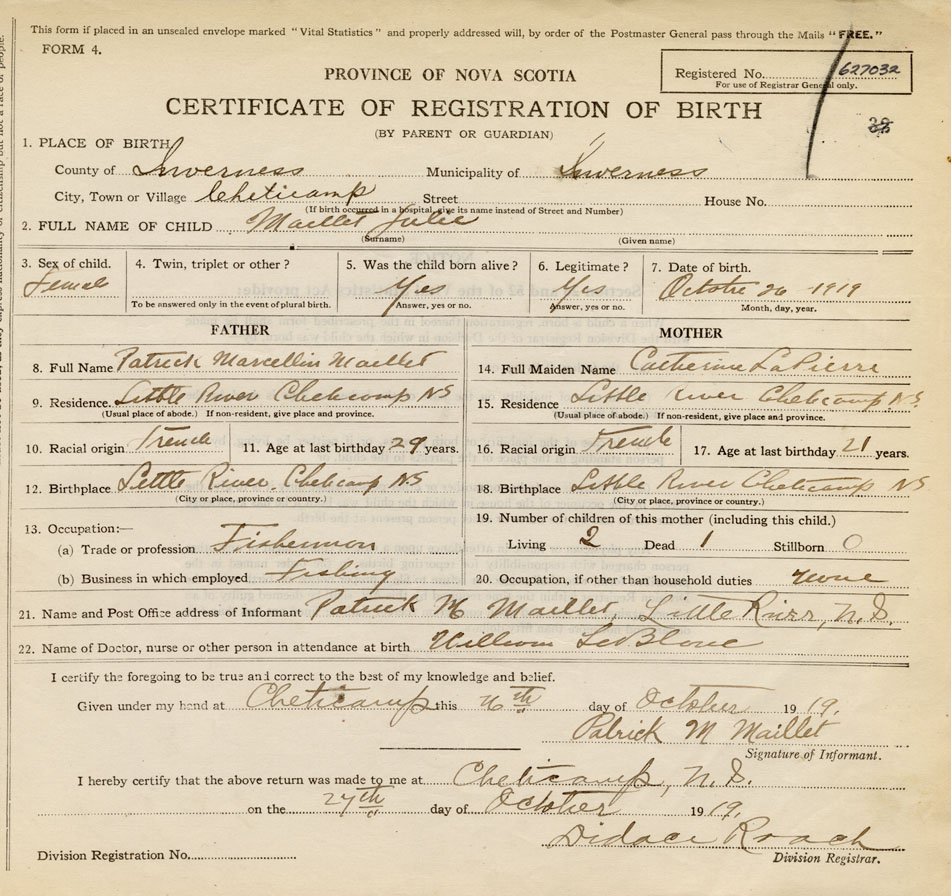 This form if placed in an unsealed envelope marked "Vital Statistics" and properly addressed will, by order of the Postmaster General pass through the Mails "FREE."
FORM 4.
PROVINCE OF NOVA SCOTIA
Registered No. 627032
For use of Registrar General only.
CERTIFICATE OF REGISTRATION OF BIRTH
(BY PARENT OR GUARDIAN)
1. PLACE OF BIRTH
County of Inverness Municipality of Inverness
City, Town or Village Cheticamp Street House No.
(If birth occurred in a hospital, give its name instead of Street and Number)
2. FULL NAME OF CHILD Maillet Julie
(Surname) (Given name)
3. Sex of child. 4. Twin, triplet or other? 5. Was the child born alive? 6. Legitimate? 7. Date of birth.
Female Yes Yes Octobre 26 - 1919
To be answered only in the event of plural birth. Answer, yes or no. Answer, yes or no. Month, day, year.
FATHER MOTHER
8. Full Name Patrick Marcellin Maillet 14. Full Maiden Name Catherine LaPierre
9. Residence. Little River Cheticamp NS 15. Residence Little River Cheticamp N.S.
(Usual place of abode.) If non-resident, give place and province. (Usual place of abode.) If non-resident, give place and province.
10. Racial origin French 11. Age at last birthday 29 years. 16. Racial origin French 17. Age at last birthday 21 years.
12. Birthplace Little River Cheticamp NS 18. Birthplace Little River Cheticamp NS
(City or place, province or country.) (City or place, province or country.)
13. Occupation:— 19. Number of children of this mother (including this child.)
(a) Trade or profession Fisherman Living 2 Dead 1 Stillborn 0
(b) Business in which employed Fishing 20. Occupation, if other than household duties none
21. Name and Post Office address of Informant Patrick M Maillet, Little River, N.S.
22. Name of Doctor, nurse or other person in attendance at birth William LeBlanc
I certify the foregoing to be true and correct to the best of my knowledge and belief.
Given under my hand at Cheticamp this 26th day of October 1919.
Patrick M Maillet
Signature of Informant.
I hereby certify that the above return was made to me at Cheticamp, N.S.
on the 27th day of October 1919.
Didace Roach
Division Registration No. Division Registrar.